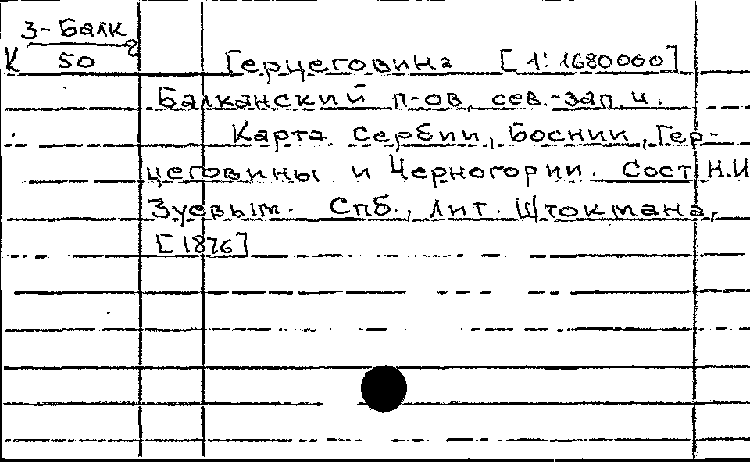 К 3-Балк
50
Герцеговина [1:1680000]
Балканский п-ов, сев.-зап. ч.
Карта Сербии, Боснии, Гер-
цеговины и Черногории. Сост. Н.И
Зуевым. Спб., лит. Штокмана,
[1876]